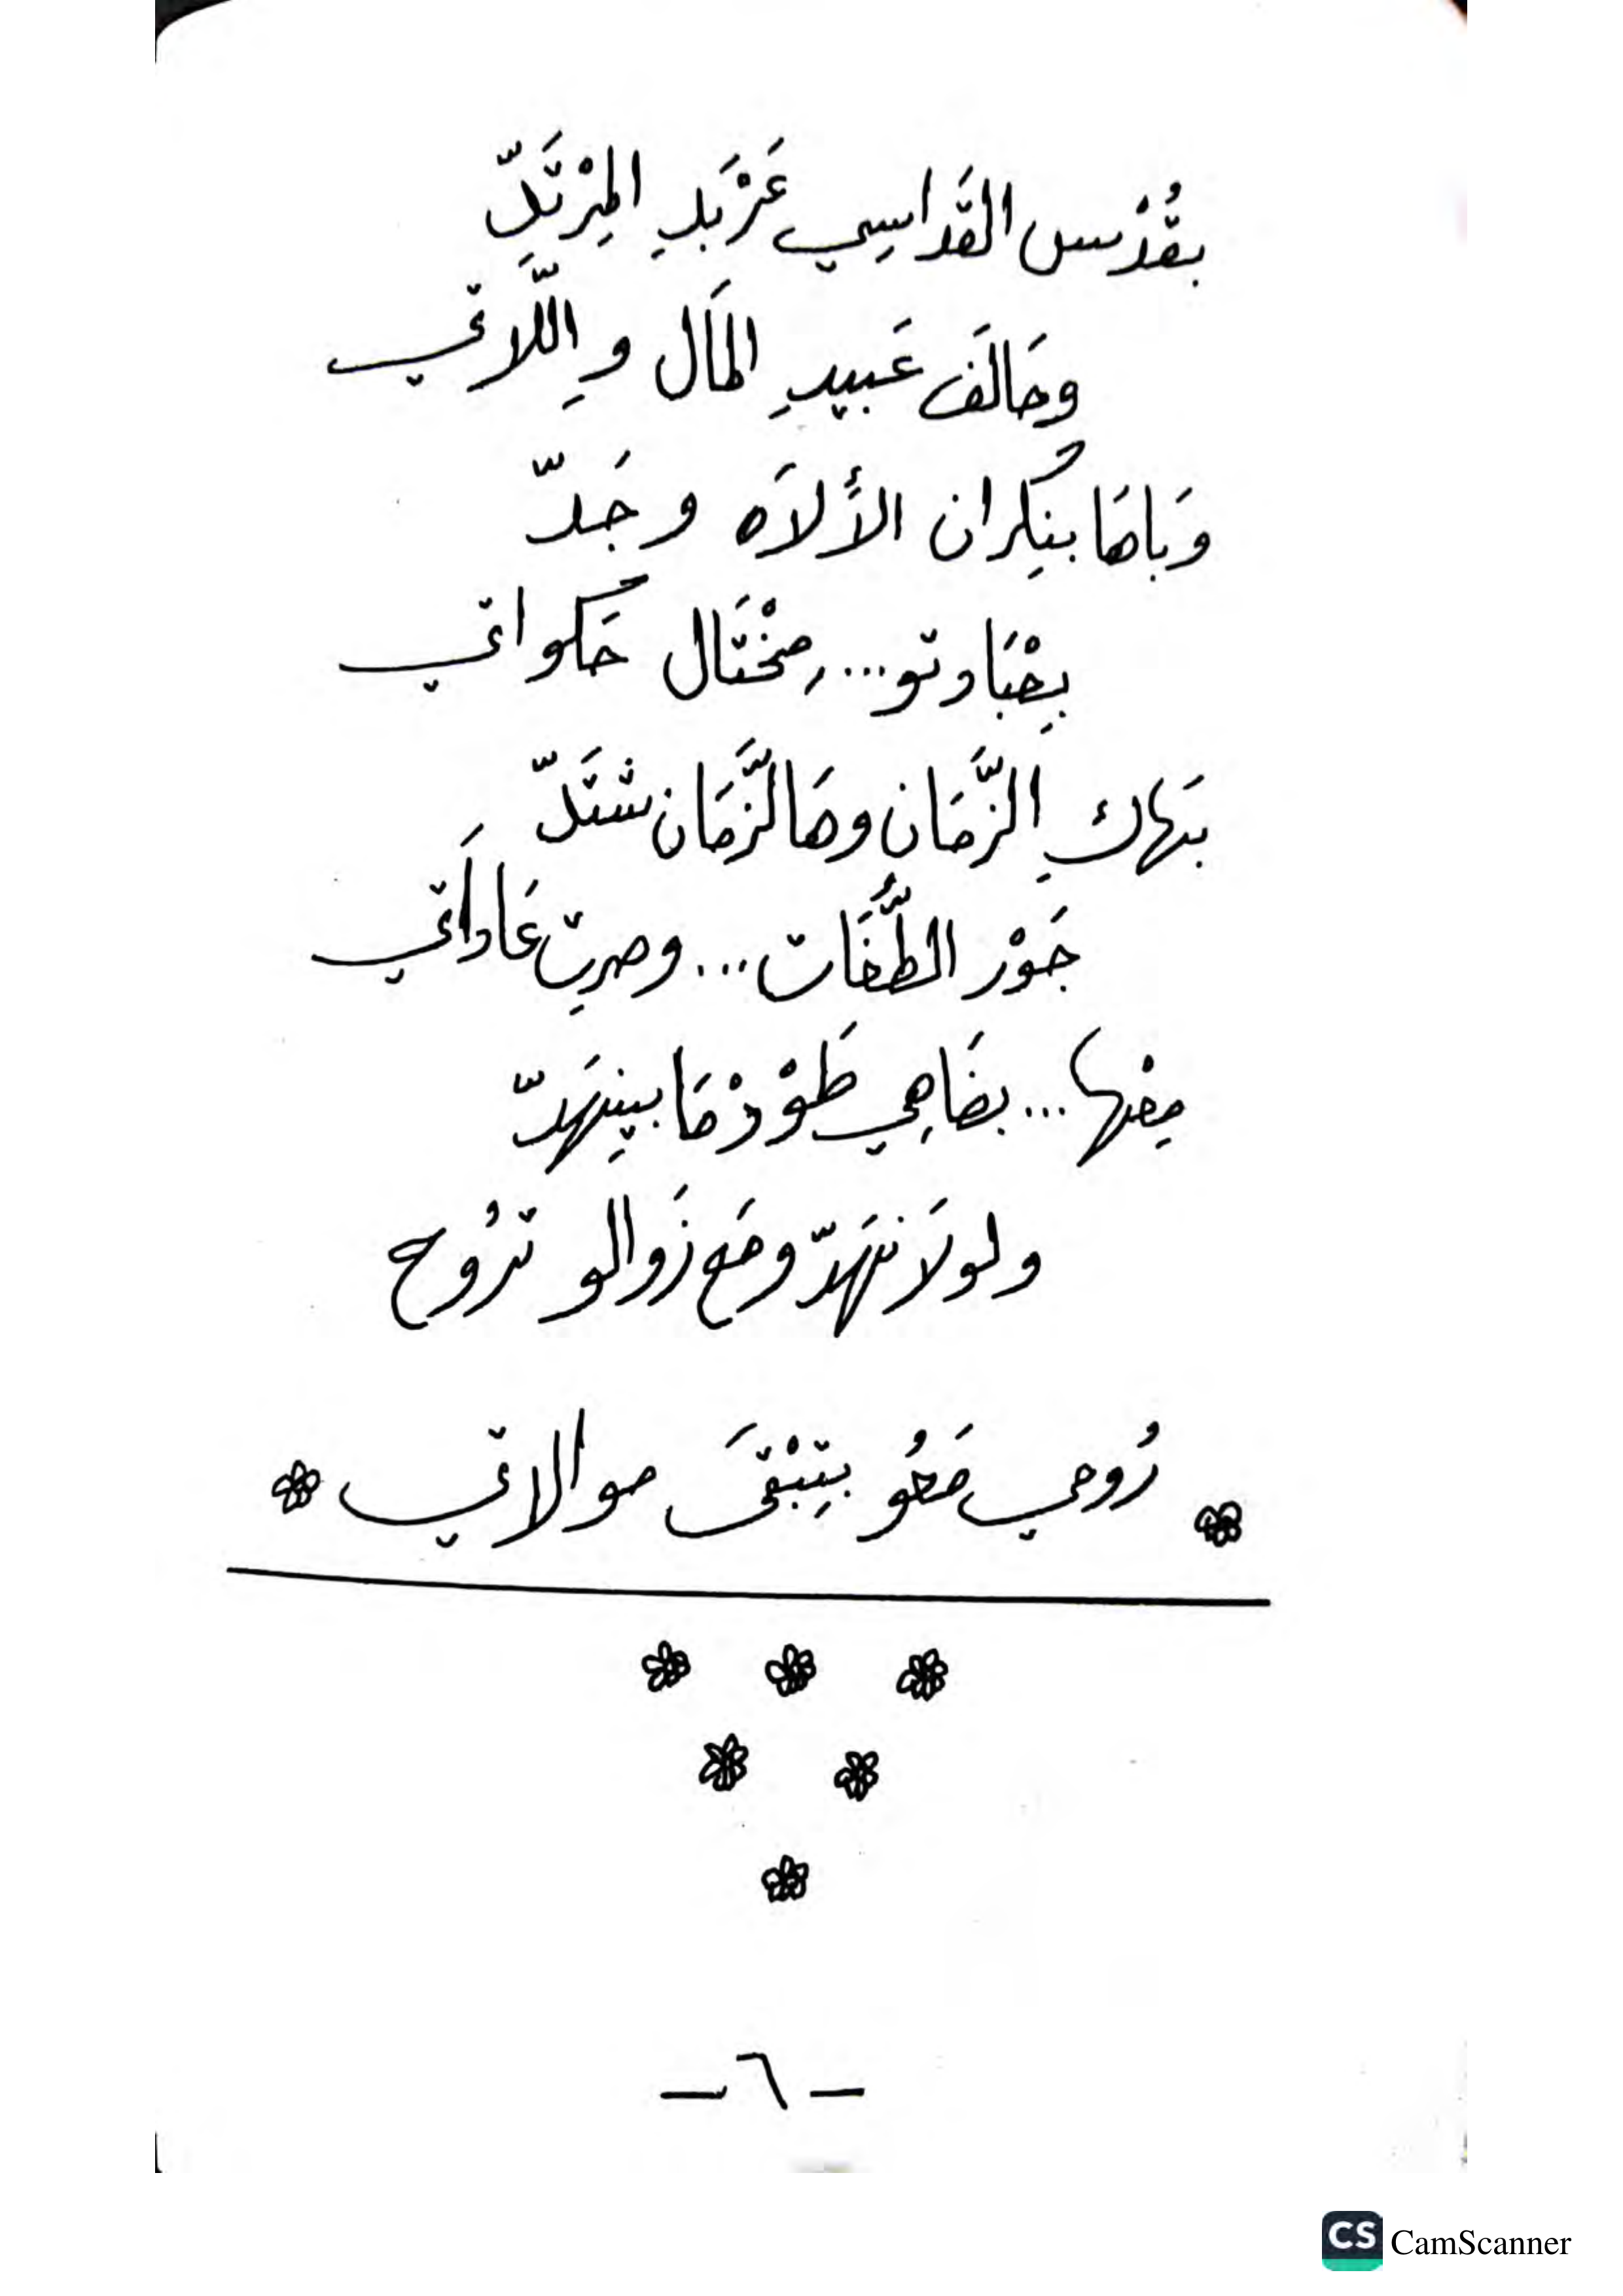 بقُدْس القَداسِي عَرْبَدِ المِرْتَدِّ
وحَالَف عَبيدِ المَال وِاللَّاتي
وَباهَا بنِكران الألاَه وجَدّ
بِحْبَاوتو... مِخْتَال حَكواتي
بَهاكِ الزَّمَان وهَالزَّمَان شتَدّ
جَوْر الطُّغَات... وصرِت عَادَاتي
مِنْها... بضَاهِي طَوْدْ مَا بينِهَدّ
ولو لاَنهَدّ ومَع زَوالو تْرُوح
رُوحي مَعُو بتِبْقَى موالاتي
-٦-
CS CamScanner